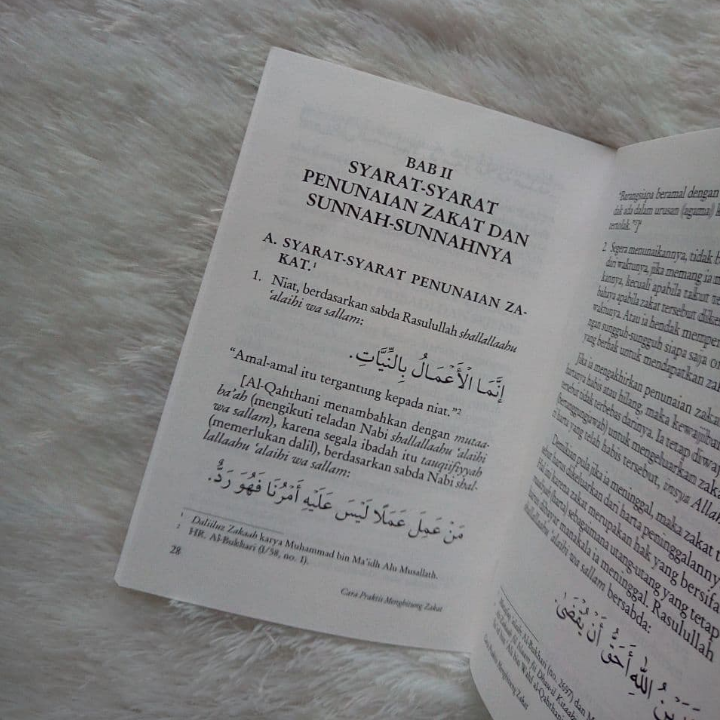 BAB II
SYARAT-SYARAT
PENUNAIAN ZAKAT DAN
SUNNAH-SUNNAHNYA
A. SYARAT-SYARAT PENUNAIAN ZA-
KAT.¹
1. Niat, berdasarkan sabda Rasulullah shallallaahu
‘alaihi wa sallam:
إِنَّمَا الْأَعْمَالُ بِالنِّيَّاتِ.
“Amal-amal itu tergantung kepada niat.”²
[Al-Qahthani menambahkan dengan mutaa-
ba’ah (mengikuti teladan Nabi shallallaahu ‘alaihi
wa sallam), karena segala ibadah itu tauqiifiyyah
(memerlukan dalil), berdasarkan sabda Nabi shal-
lallaahu ‘alaihi wa sallam:
مَنْ عَمِلَ عَمَلًا لَيْسَ عَلَيْهِ أَمْرُنَا فَهُوَ رَدٌّ.
¹ Daliiluz Zakaah karya Muhammad bin Ma’idh Alu Musallath.
² HR. Al-Bukhari (I/58, no. 1).
28
Cara Praktis Menghitung Zakat
“Barangsiapa beramal dengan
tidak ada dalam urusan (agama)
2. Segera menunaikannya, tidak
dari waktunya, jika memang ia
kannya, kecuali apabila takut
bahaya apabila zakat tersebut
waktunya. Atau ia hendak
ngan sungguh-sungguh siapa saja
yang berhak untuk mendapatkan
Jika ia mengakhirkan penunaian
hartanya habis atau hilang, maka
tersebut tidak terbebas darinya. Ia tetap
untuk mengeluarkan
harta yang telah habis tersebut, insya Allah
Demikian pula jika ia meninggal, maka zakat
harus dikeluarkan dari harta peninggalannya
karena zakat merupakan hak yang bersifat
sebagaimana utang-utang yang tetap
dibayar manakala ia meninggal. Rasulullah
shallallaahu ‘alaihi wa sallam bersabda:
اللهِ أَحَقُّ أَنْ يُقْضَى.